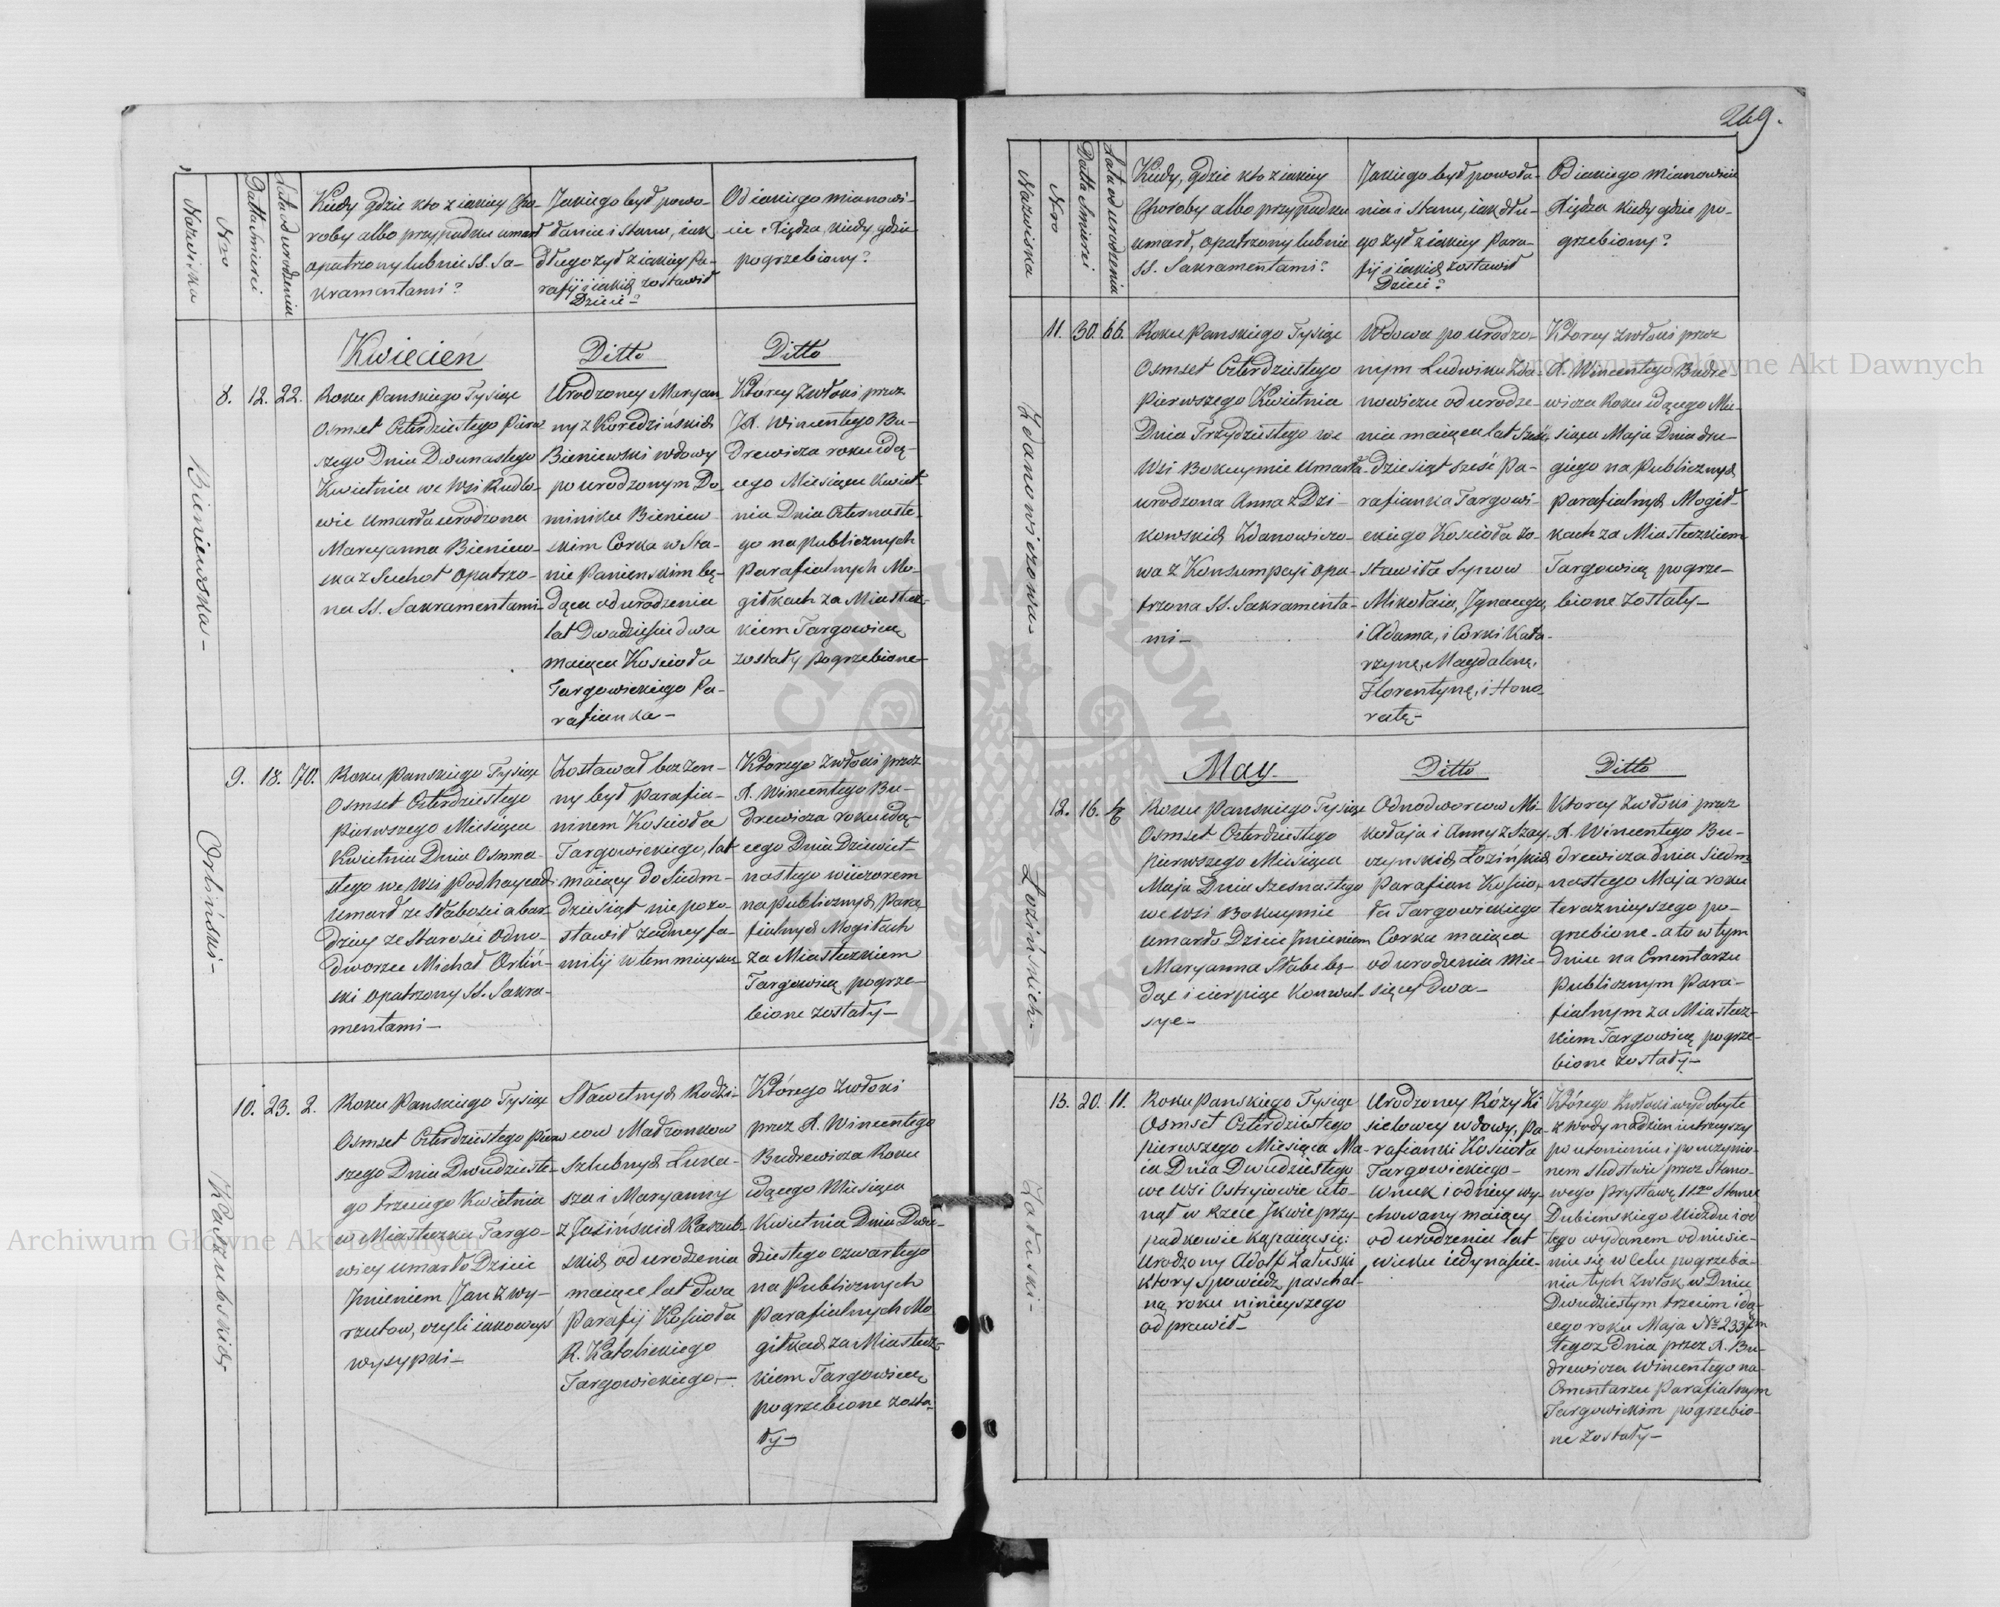 269.
Nazwiska
Nro
Datta Smierci
Lata od urodzenia
Kiedy gdzie kto z iakiey Cho-
roby albo przypadku umarł
opatrzony lub nie SS. Sa-
kramentami?
Jakiego był powo-
łania i stanu, iak
długo żył z iakiey Pa-
rafij i iakich zostawił
Dzieci?
Od iakiego mianowi-
cie Xiędza, kiedy, gdzie
pogrzebiony?
Kwiecień
Ditto
Ditto
Bieniewska-
8. 12. 22.
Roku Panskiego Tysiąc
Osmset Czterdziestego Pierw
szego Dnia Dwunastego
Kwietnia we Wsi Rudlo-
wie umarła urodzona
Maryanna Bieniew-
ska z Suchot opatrzo-
na SS. Sakramentami-
Urodzoney Maryan
ny z Koredzińskich
Bieniewski wdowy
po urodzonym Do-
miniku Bieniew-
skim Corka w Sta-
nie Panienskim bę-
dąca od urodzenia
lat Dwadzieście dwa
maiąca Kościoła
Targowickiego Pa-
rafianka-
Którey Zwłoki przez
JX. Wincentego Bu-
drewicza roku idą-
cego Miesiąca Kwiet
nia Dnia Czternaste-
go na publicznych
Parafialnych Mo-
giłkach za Miastecz-
kiem Targowicą
zostały pogrzebione-
Orliński-
9. 18. 70.
Roku Panskiego Tysiąc
Osmset Czterdziestego
Pierwszego Miesiąca
Kwietnia Dnia Osmna-
stego we Wsi Podhaycach
umarł ze słabości a bar-
dziey ze starości Odno-
dworzec Michał Orliń-
ski opatrzony SS. Sakra-
mentami-
Zostawał bezżen-
ny był Parafia-
ninem Kościoła
Targowickiego, lat
maiący do Siedm-
dziesiąt nie pozo-
stawił żadney fa-
milij w tem mieyscu
Którego Zwłoki przez
X. Wincentego Bu-
drewicza roku idą-
cego Dnia Dziewięt-
nastego wieczorem
na publicznych Para-
fialnych Mogiłach
za Miasteczkiem
Targowicą pogrze-
bione zostały-
Kaszubskich-
10. 23. 2.
Roku Panskiego Tysiąc
Osmset Czterdziestego pierw
szego Dnia Dwudzieste-
go trzeciego Kwietnia
w Miasteczku Targo-
wicy umarło Dziecie
Jmieniem Jan z wy-
rzutow, czyli iakoweyś
wysypki-
Sławetnych Rodzi-
cow Małżonkow
Szlubnych Łuka-
sza i Maryanny
z Jasińskich Kaszub-
skich od urodzenia
maiące lat Dwa
Parafij Kościoła
R. Katolickiego
Targowickiego-
Którego Zwłoki
przez X. Wincentego
Budrewicza Roku
idącego Miesiąca
Kwietnia Dnia Dwu-
dziestego czwartego
na Publicznych
Parafialnych Mo-
giłkach za Miastecz-
kiem Targowicą
pogrzebione zosta-
ły-
Nazwiska
Nro
Datta Smierci
Lata od urodzenia
Kiedy, gdzie kto z iakiey
Choroby albo przypadku
umarł, opatrzony lub nie
SS. Sakramentami?
Jakiego był powoła-
nia i stanu, iak dłu-
go żył z iakiey Para-
fij i iakich zostawił
Dzieci?
Od iakiego mianowicie
Xiędza kiedy gdzie po-
grzebiony?
Zdanowiczowa-
11. 30. 66.
Roku Panskiego Tysiąc
Osmset Czterdziestego
Pierwszego Kwietnia
Dnia Trzydziestego we
Wsi Bokuymie umarła
urodzona Anna z Dzi-
kowskich Zdanowiczo-
wa z Konsumpcyi opa-
trzona SS. Sakramenta-
mi-
Wdowa po urodzo-
nym Ludwiku Zda-
nowiczu od urodze-
nia maiąca lat sześć-
dziesiąt sześć Pa-
rafianka Targowi-
ckiego Kościoła zo-
stawiła Synow
Mikołaia, Jgnacego,
i Adama, i Corki Kata-
rzynę, Magdalenę,
Florentynę, i Hono-
ratę-
Ktorey Zwłoki przez
X. Wincentego Budre-
wicza Roku idącego Mie-
siąca Maja Dnia dru-
giego na Publicznych
Parafialnych Mogił-
kach za Miasteczkiem
Targowicą pogrze-
bione zostały-
May-
Ditto
Ditto
Łozińskich-
12. 16.
Roku Panskiego Tysiąc
Osmset Czterdziestego
pierwszego Miesiąca
Maja Dnia Szesnastego
we Wsi Bokuymie
umarło Dziecie Jmieniem
Maryanna Słabe bę-
dąc i cierpiąc Konwul-
sye-
Odnodworcow Mi-
kołaja i Anny z Szay-
czynskich Łozińskich
Parafian Kościo-
ła Targowickiego
Corka maiąca
od urodzenia Mie-
sięcy Dwa-
Ktorey Zwłoki przez
X. Wincentego Bu-
drewicza dnia Siedm
nastego Maja roku
teraznieyszego po-
grzebione - a to w tym
Dniu na Cmentarzu
Publicznym Para-
fialnym za Miastecz-
kiem Targowicą pogrze-
bione zostały-
Załuski-
13. 20. 11.
Roku Panskiego Tysiąc
Osmset Czterdziestego
pierwszego Miesiąca Ma-
ia Dnia Dwudziestego
we Wsi Ostryiowie uto-
nął w Rzece Jkwie przy-
padkowie kąpaiąc się:
Urodzony Adolf Załuski
ktory Spowiedz paschal-
ną roku ninieyszego
odprawił-
Urodzoney Róży Ki
sielowey wdowy, Pa-
rafianki Kościoła
Targowickiego-
Wnuk i od niey wy-
chowany maiący
od urodzenia lat
wieku iedynaście-
Którego Zwłoki wydobyte
z wody nadzień ieden
po utonieniu i po uczynio-
nem śledstwie przez Stano-
wego Prystawę 11go Stanu
Dubienskiego Uiezdu i od
tego wydanem odniesie-
niu się w Celu pogrzeba-
nia tych Zwłok w Dniu
Dwudziestym trzecim idą-
cego roku Maja No 233
tegoż Dnia przez X. Bu-
drewicza Wincentego na
Cmentarzu Parafialnym
Targowickim pogrzebio-
ne zostały-
Archiwum Główne Akt Dawnych
Archiwum Główne Akt Dawnych
ARCHIWUM GŁÓWNE AKT DAWNYCH